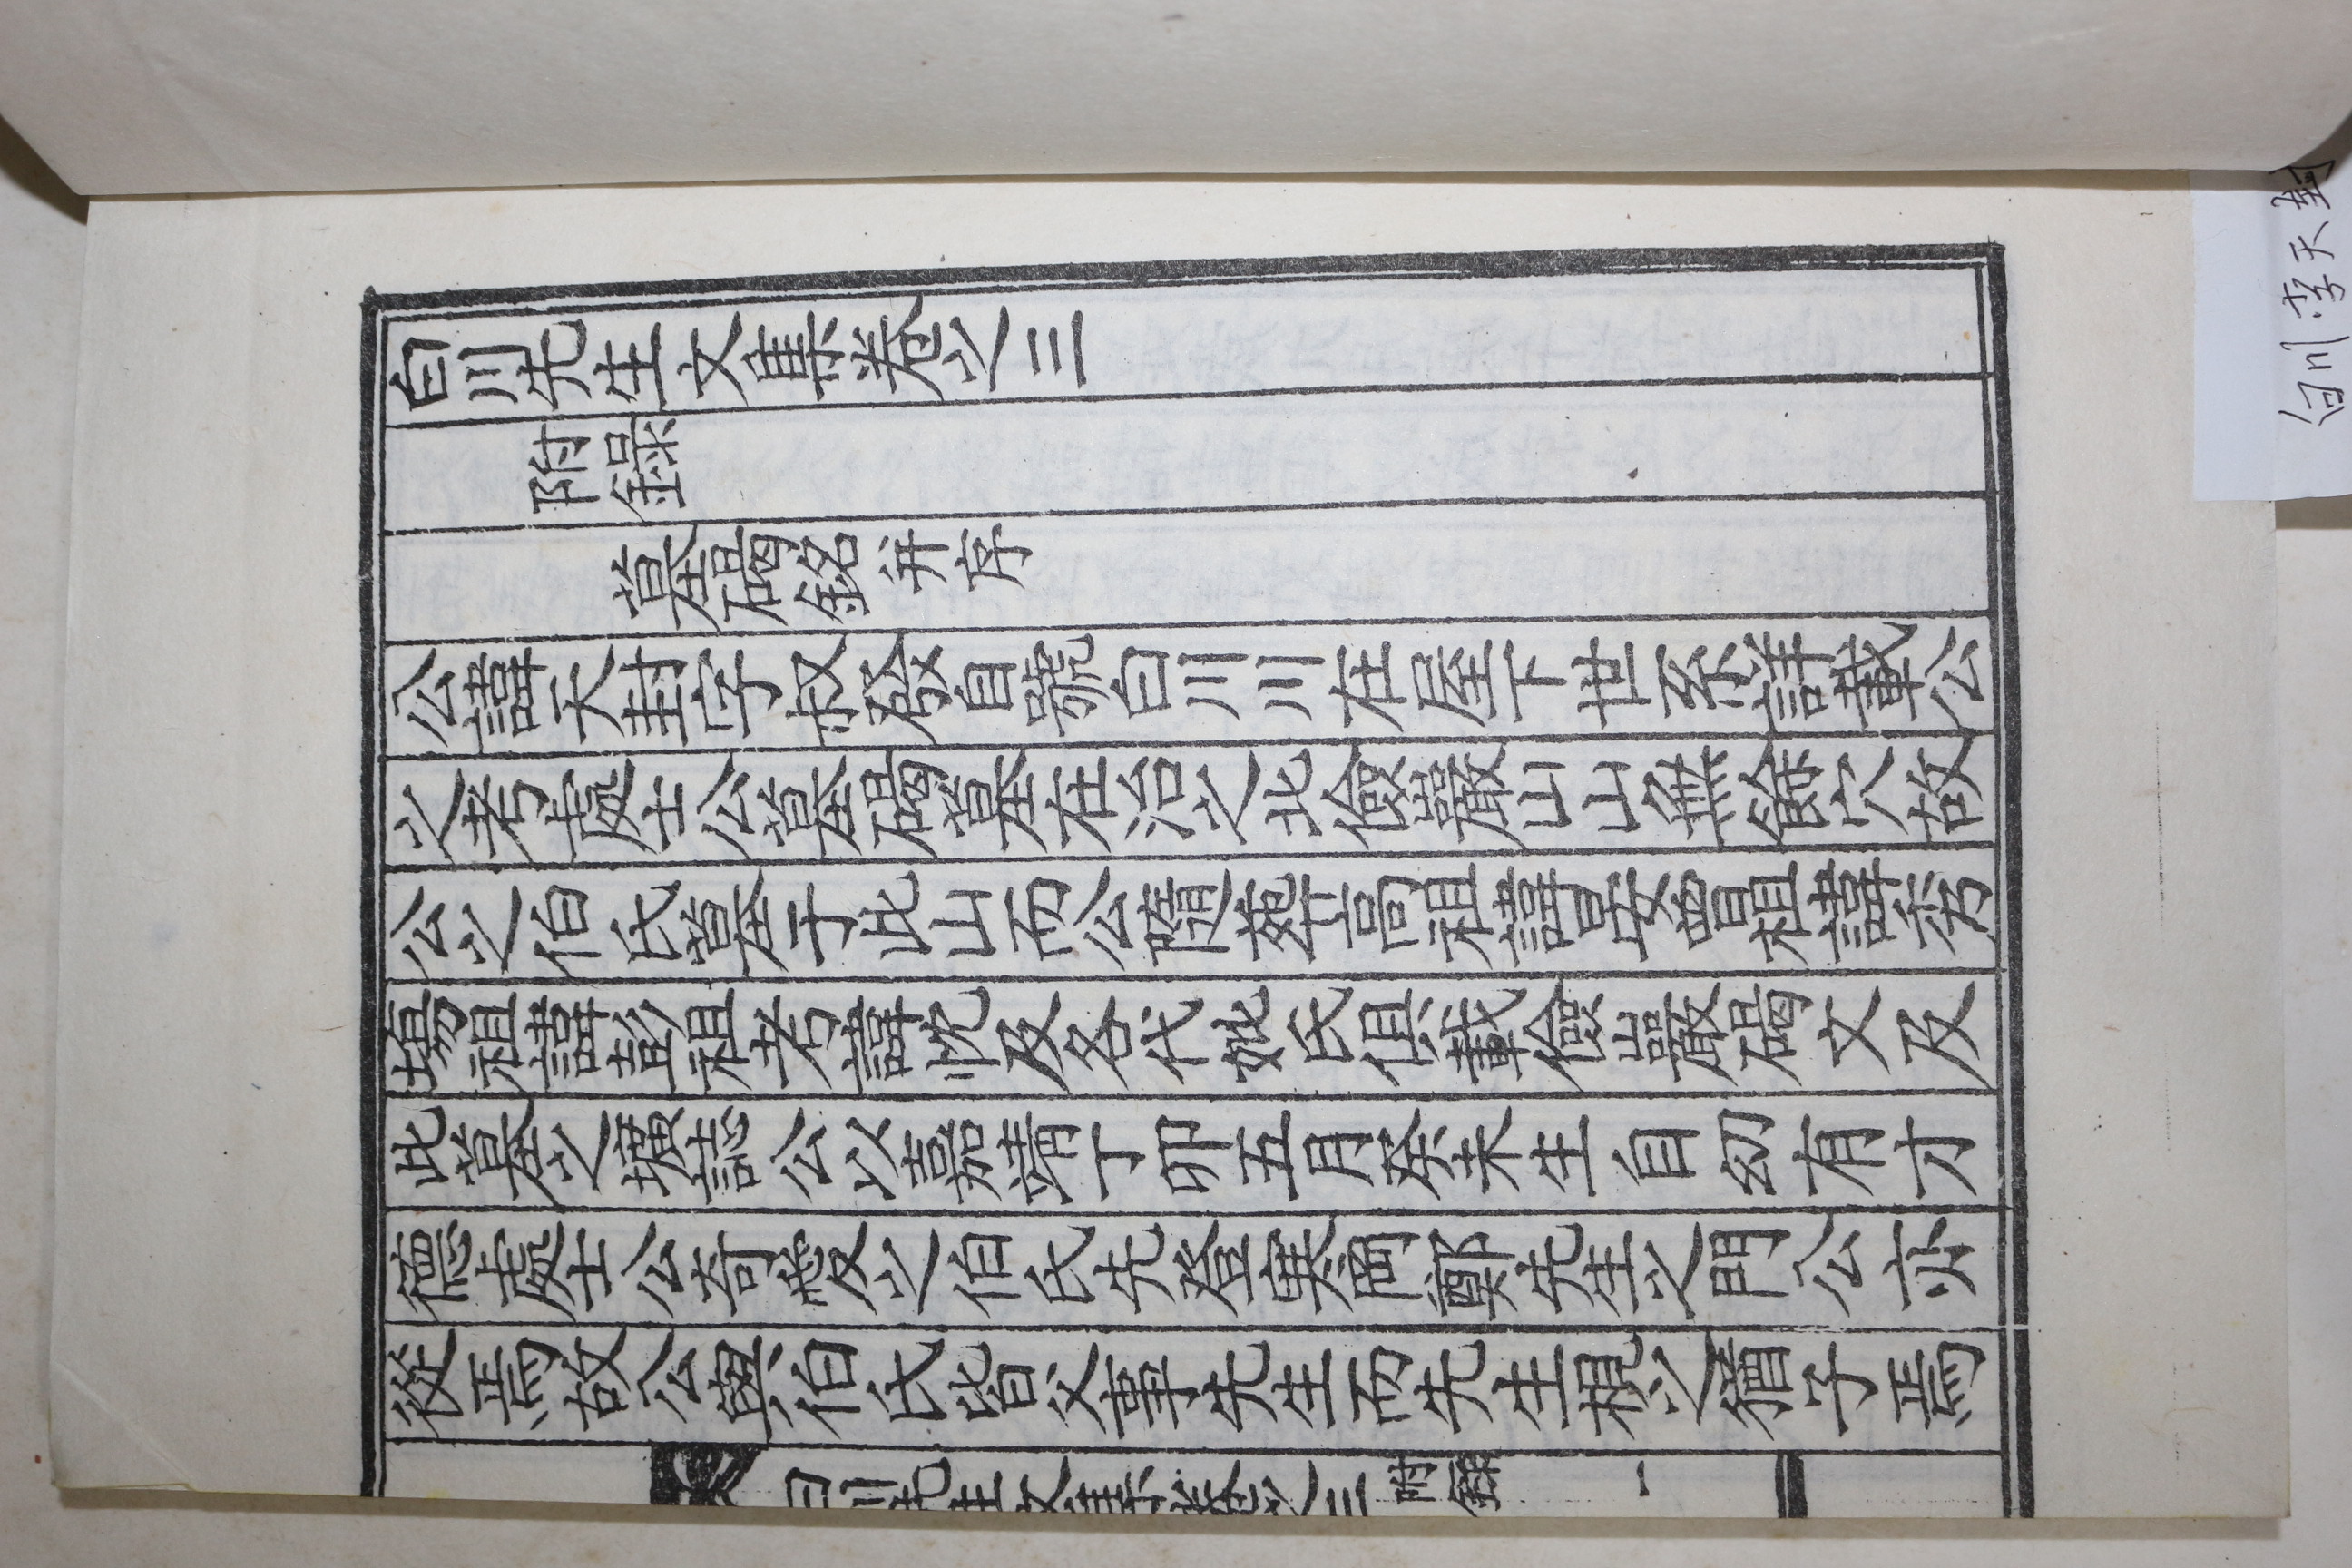 白川先生文集卷之三
附錄
墓碣銘并序
公諱天封字叔發自號白川川在屋下世系詳載公
之考處士公墓碣墓在治之北儉巖山山無餘穴故
公之伯氏墓于此山而公隨窆幷高祖諱晏曾祖諱秀
塲祖諱彭祖考諱忱及各代妣氏俱載儉巖碣文及
此墓之壙誌公以嘉靖丁卯五月癸未生自幼有才
德處士公奇愛之伯氏先登寒岡鄭先生之門公亦
從焉故公與伯氏皆父事先生而先生視之猶子焉
白川先生文集卷之三 附錄 一
白川 李天封